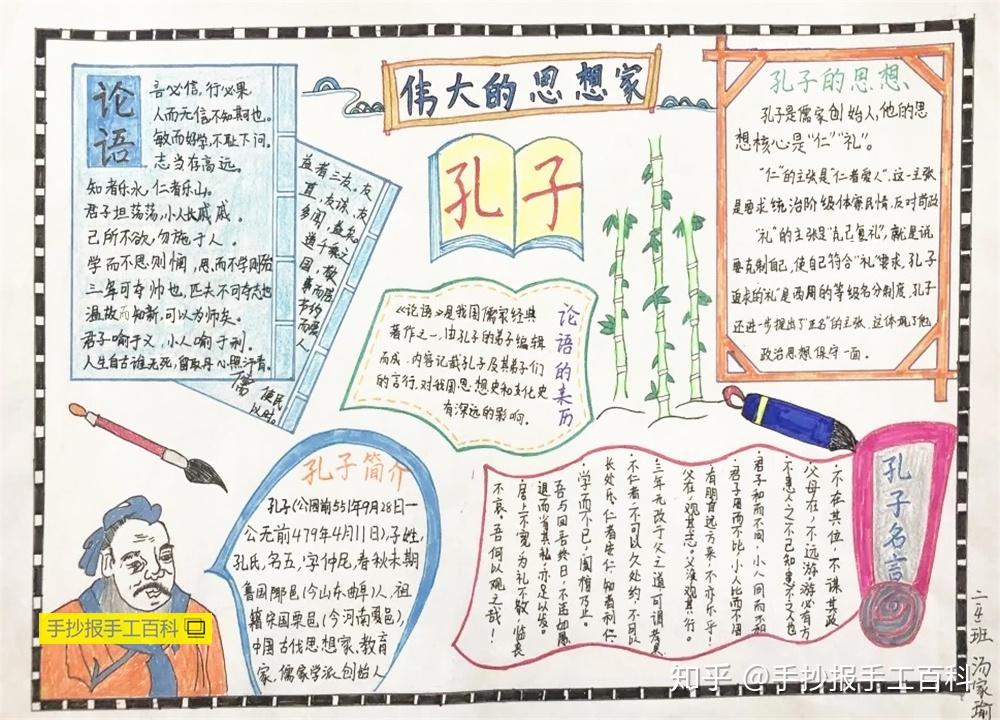 伟大的思想家
孔子
论语
言必信,行必果
人而无信不知其可也。
敏而好学,不耻下问。
志当存高远。
知者乐水,仁者乐山。
君子坦荡荡,小人长戚戚。
己所不欲,勿施于人。
学而不思则惘,思而不学则殆
三军可夺帅也,匹夫不可夺志也
温故而知新,可以为师矣。
君子喻于义,小人喻于利。
人生自古谁无死,留取丹心照汗青。
益者三友。友
直,友谅,友
多闻,益矣。
道千乘之
国,敬
事而信
节约
而爱人
使民
以时。
儒
论语的来历
《论语》是我国儒家经典
著作之一,由孔子的弟子编辑
而成。内容记载孔子及其弟子们
的言行,对我国思想史和文化史
有深远的影响。
孔子的思想
孔子是儒家创始人,他的思
想核心是“仁”“礼”。
“仁”的主张是“仁者爱人”,这一主张
是要求统治阶级体察民情,反对苛政
“礼”的主张是“克己复礼”,就是说
要克制自己,使自己符合“礼”要求。孔子
追求的“礼”是西周的等级名分制度,孔子
还进一步提出了“正名”的主张,这体现了他
政治思想保守一面。
孔子简介
孔子(公园前551年9月28日一
公元前479年4月11日),子姓,
孔氏,名丘,字仲尼,春秋末期
鲁国陬邑(今山东曲阜)人,祖
籍宋国栗邑(今河南夏邑),
中国古代思想家、教育
家,儒家学派创始人
孔子名言
·不在其位,不谋其政
·父母在,不远游,游必有方
·不患人之不己知,患不知人也
·君子和而不同,小人同而不和
·君子周而不比,小人比而不周
·有朋自远方来,不亦乐乎!
·父在,观其志。父没观其行。
三年无改于父之道可谓孝矣
·不仁者不可以久处约,不可以
长处乐。仁者安仁,知者利仁。
·学而不已,阖棺乃止。
·吾与回言终日,不违如愚
退而省其私,亦足以发。
·居上不宽,为礼不敬,临丧
不哀,吾何以观之哉!
二年4班 汤家瑜
手抄报手工百科
知乎 @手抄报手工百科